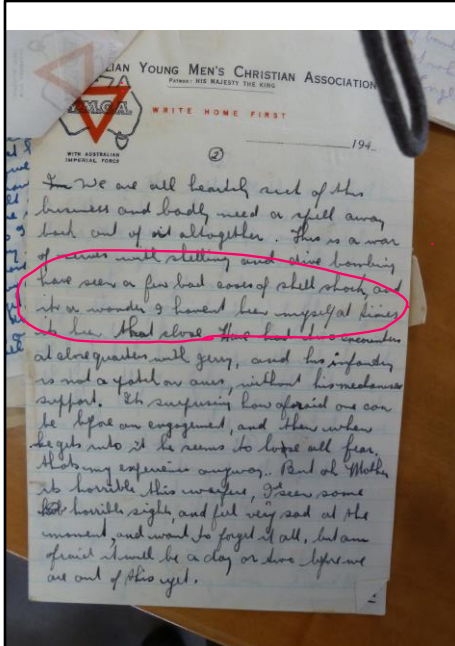 LIAN YOUNG MEN'S CHRISTIAN ASSOCIATION
PATRON: HIS MAJESTY THE KING
Y.M.C.A.
WRITE HOME FIRST
WITH AUSTRALIAN
IMPERIAL FORCE
194
②
We are all heartily sick of this
business and badly need a spell away
back out of it altogether. This is a war
of nerves with shelling and dive bombing
have seen a few bad cases of shell shock, and
its a wonder I havent been myself at times
its been that close. Have had two encounters
at close quarters with gerry, and his infantry
is not a patch on ours, without his mechanised
support. Its surprising how afraid one can
be before an engagement, and then when
he gets into it he seems to loose all fear.
thats my experience anyway. But oh Mother
its horrible this warfare, I seen some
horrible sights, and feel very sad at the
moment, and want to forget it all, but am
afraid it will be a day or two before we
are out of this yet.